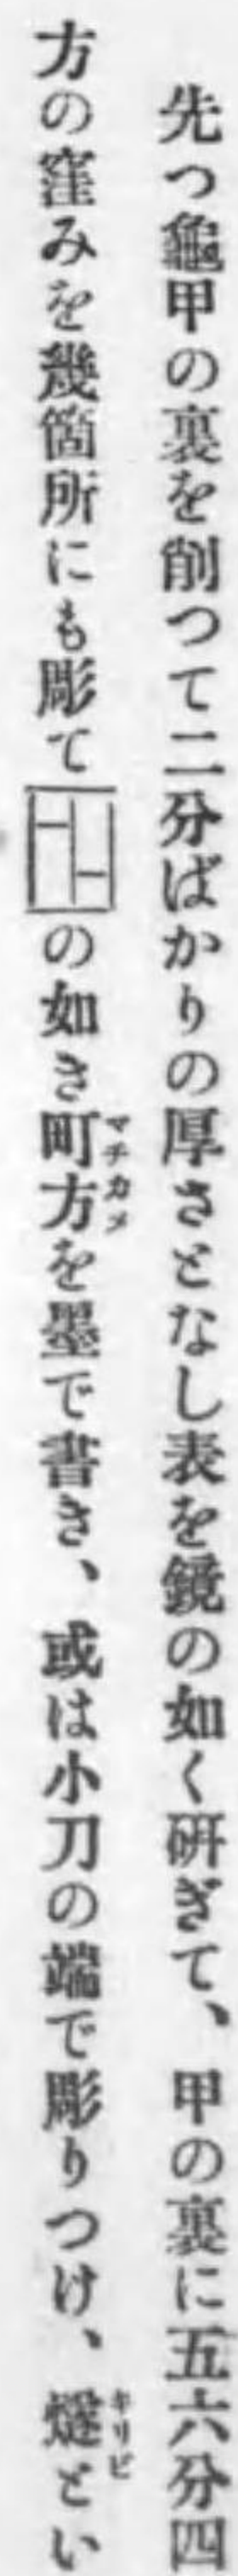 先つ龜甲の裏を削つて二分ばかりの厚さとなし表を鏡の如く研ぎて、甲の裏に五六分四
方の窪みを幾箇所にも彫ての如き町方を墨で書き、或は小刀の端で彫りつけ、燧とい
マチカメ
キリビ